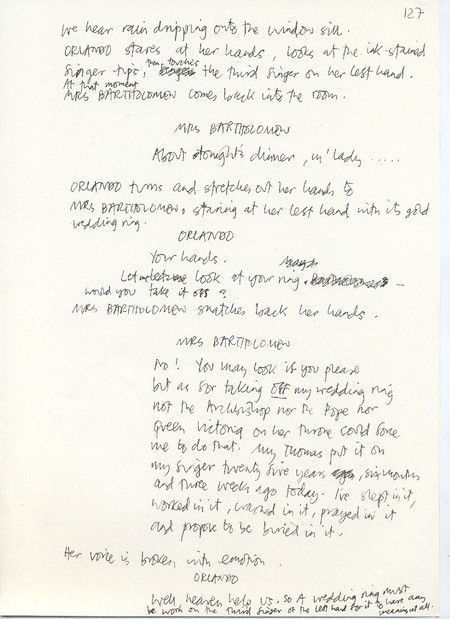 127
We hear rain dripping onto the window sill.
ORLANDO stares at her hands, looks at the ink-stained
finger tips, then touches the third finger on her left hand.
At that moment
MRS BARTHOLOMEW comes back into the room.
MRS BARTHOLOMEW
About tonight's dinner, m'lady .....
ORLANDO turns and stretches out her hands to
MRS BARTHOLOMEW, staring at her left hand with its gold
wedding ring.
ORLANDO
Your hands.
Let me look at your ring. –
would you take it off?
MRS BARTHOLOMEW snatches back her hands.
MRS BARTHOLOMEW
No! You may look if you please
but as for taking OFF my wedding ring
not the Archbishop nor the Pope nor
Queen Victoria on her throne could force
me to do that. My Thomas put it on
my finger twenty five years ago, six months
and three weeks ago today. I've slept in it,
worked in it, washed in it, prayed in it
and propose to be buried in it.
Her voice is broken with emotion.
ORLANDO
Well heaven help us. So a wedding ring must
be worn on the third finger of the left hand for it to have any
meaning at all.